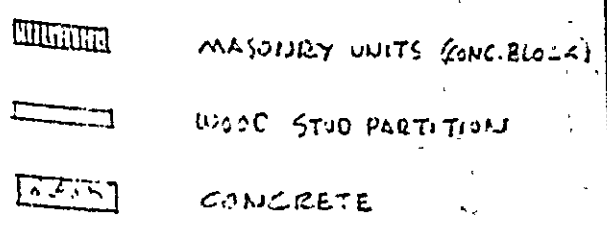 MASONRY UNITS (CONC. BLOCK)
WOOD STUD PARTITION
CONCRETE